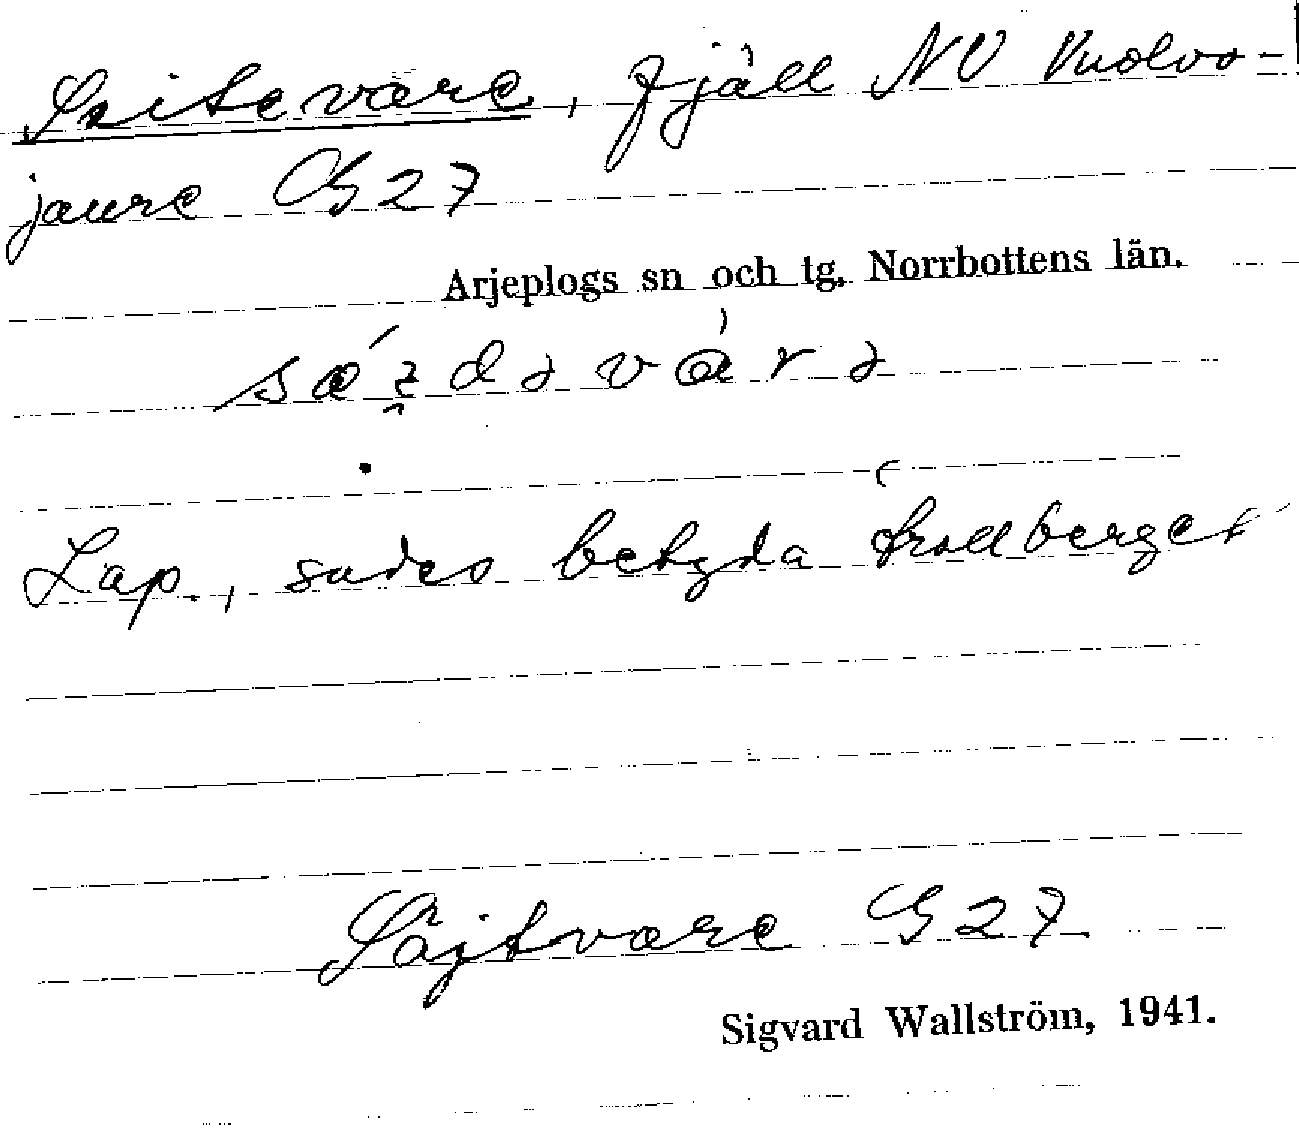 Saitevare, fjäll NV Vuolvo-
jaure G 27
Arjeplogs sn och tg, Norrbottens län.
Lap., sades betyda trollberget
Såjtvare G 27
Sigvard Wallström, 1941.